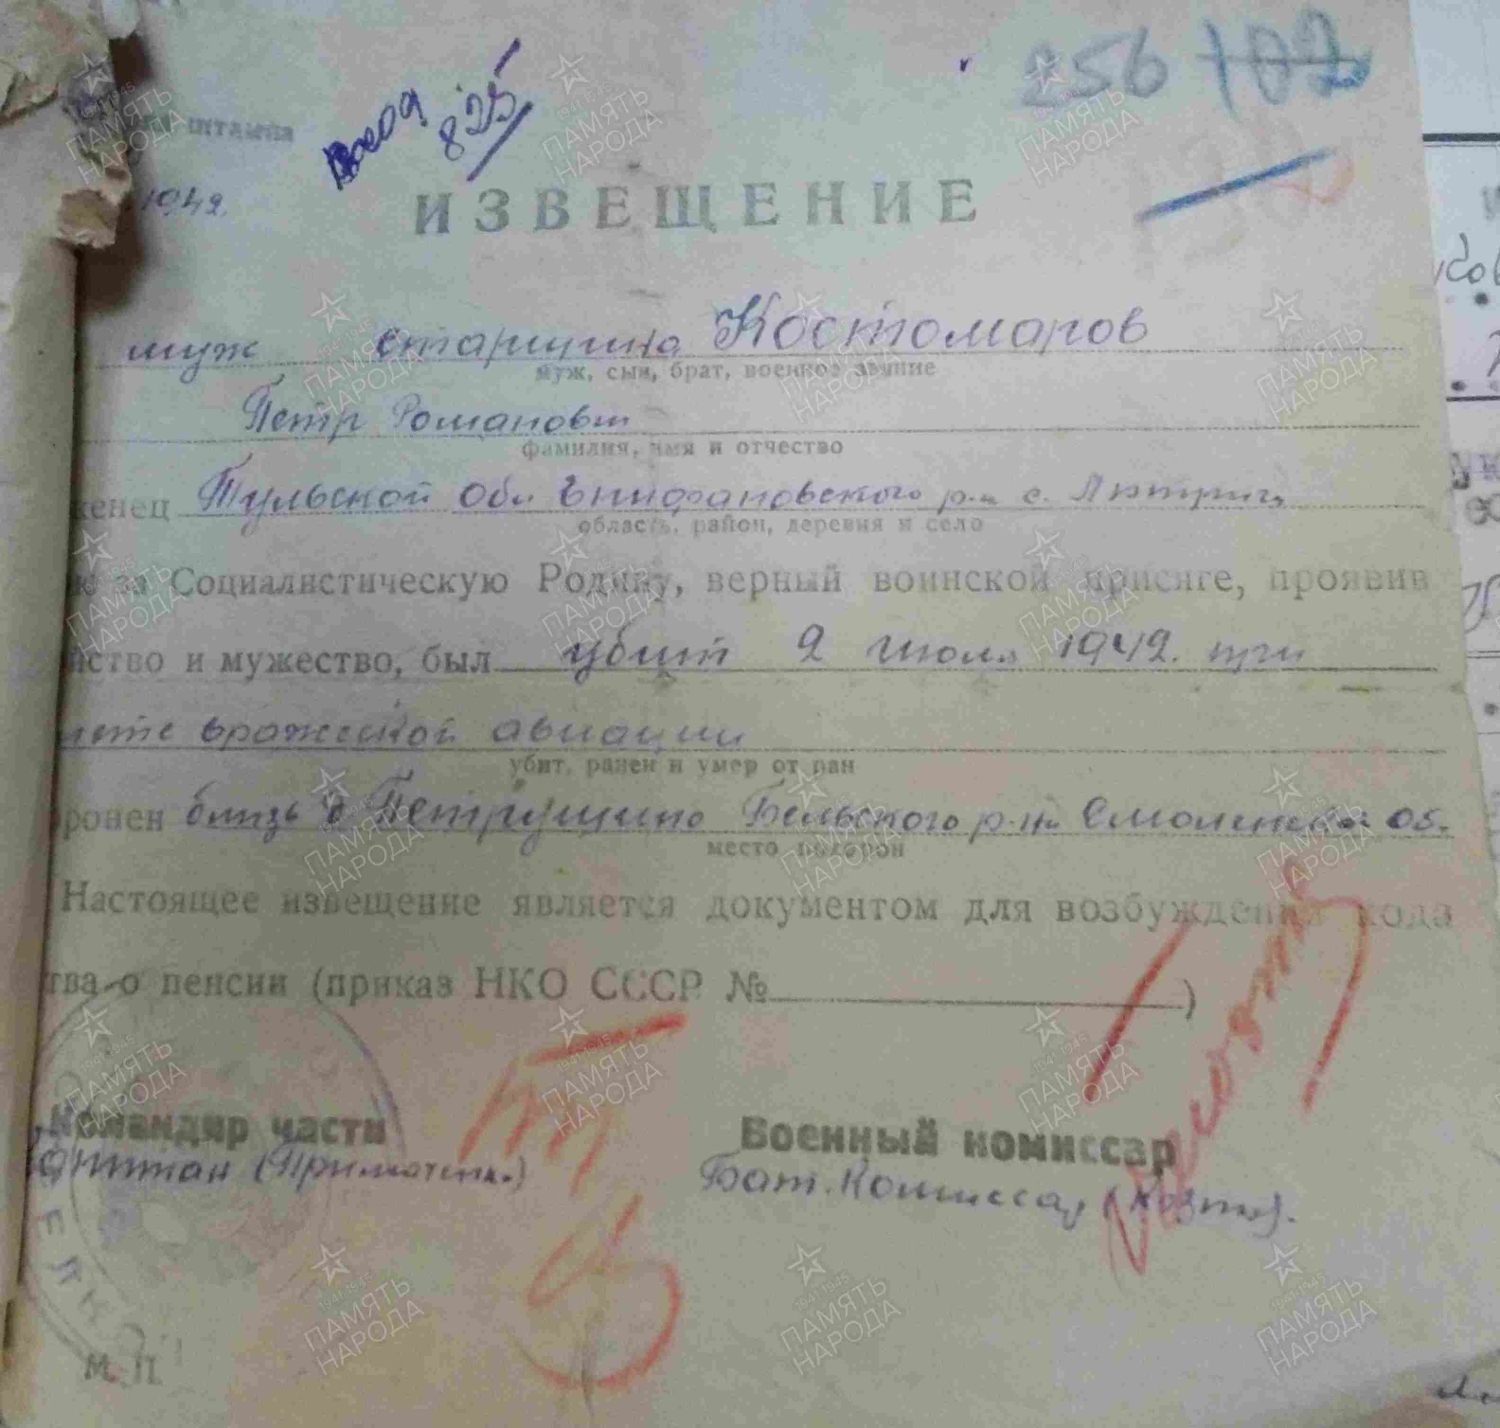 256 102
штампа
Вход 825
1942.
ИЗВЕЩЕНИЕ
муж старшина Костомаров
муж, сын, брат, военное звание
Петр Романович
фамилия, имя и отчество
женец Тульской Обл. Епифановского р-на с.
область, район, деревня и село
за Социалистическую Родину, верный воинской присяге, проявив
йство и мужество, был убит 2 июля 1942. при
лете вражеской авиации
убит, ранен и умер от ран
ронен близь д Петрушино Бельского р-на Смоленской об.
место похорон
Настоящее извещение является документом для возбуждения хода
тва о пенсии (приказ НКО СССР №)
Командир части
капитан
Военный комиссар
Бат. Комиссар
М. П.
ПАМЯТЬ НАРОДА
1941-1945